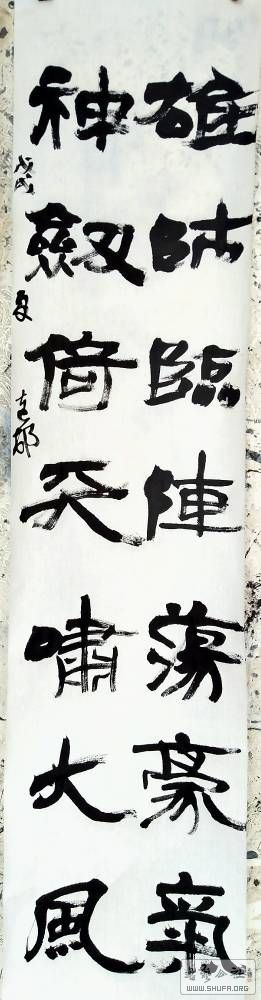 雄師臨陣蕩豪氣
神劔倚天嘯大風
戊戌夏
WWW.SHUFA.ORG